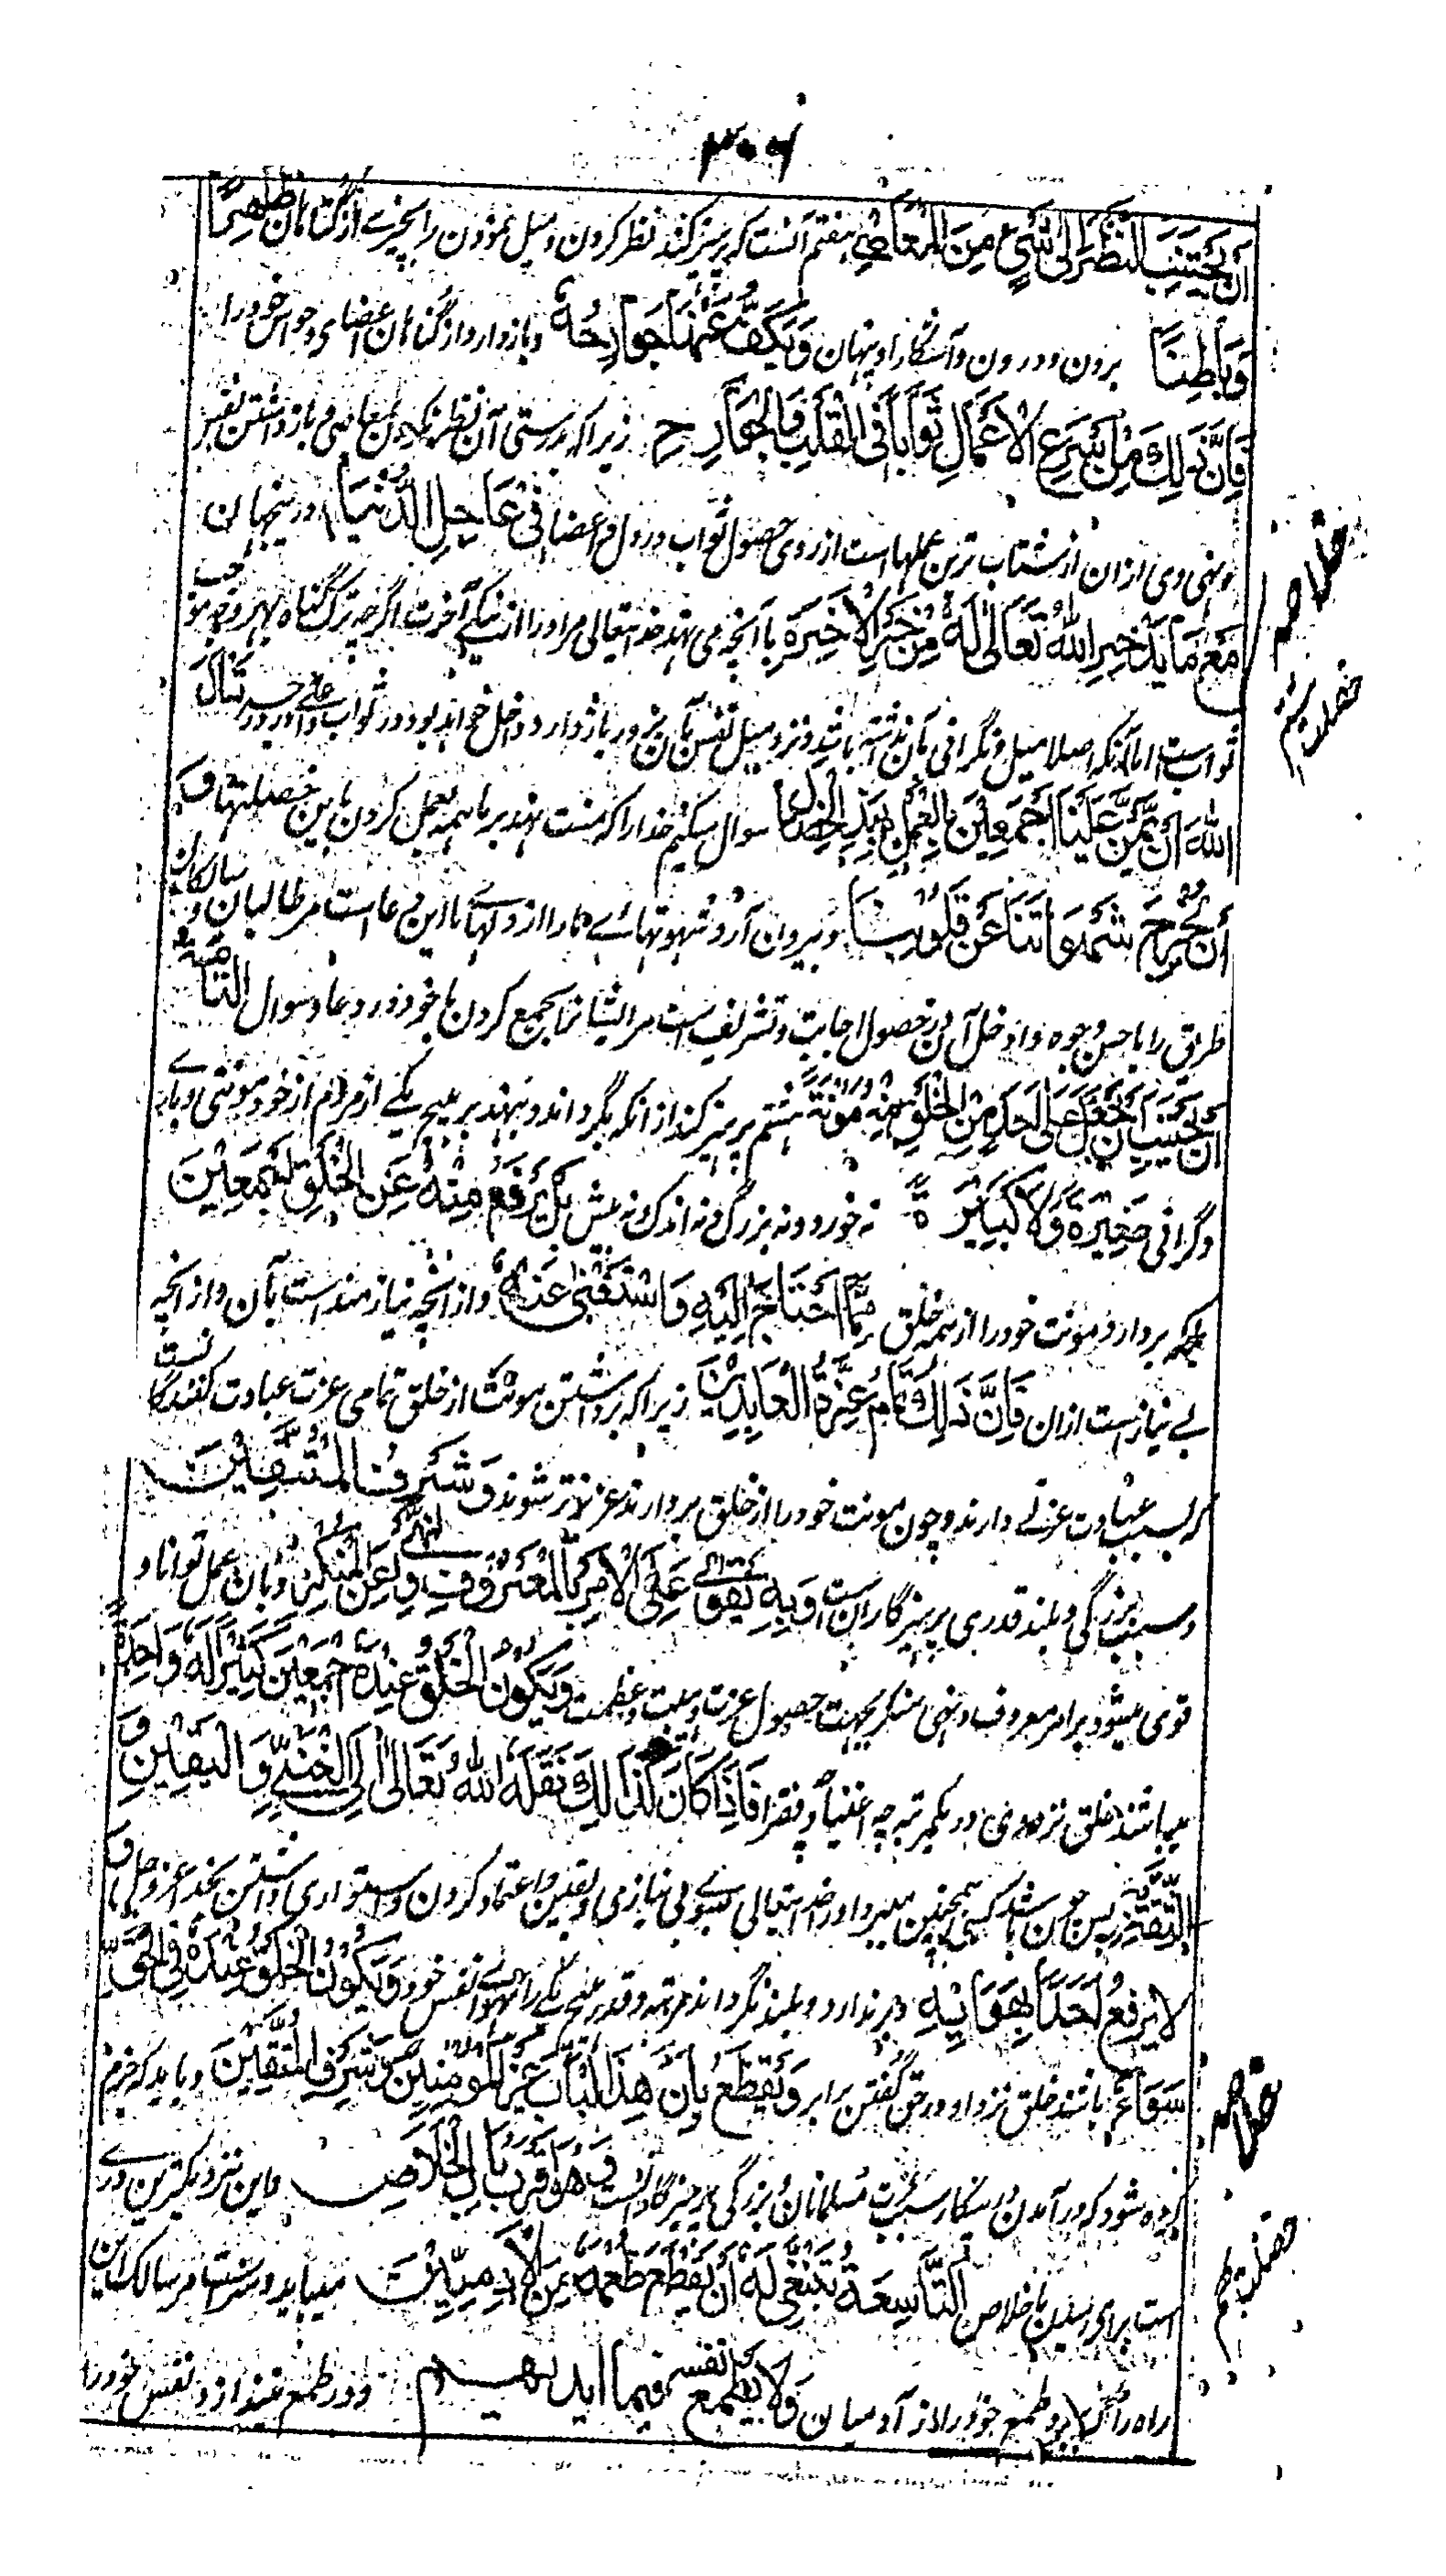 ۳۰۶
ان یجتنب النظر الی شیء من المعاصی هفتم آنست که پرهیز کند نظر کردن و میل نمودن را بچیزے از گناهان ظاهرا
وباطنا برون و درون و آشکارا و پنهان ویکف عنها جوارحه و باز دارد از گناهان اعضای و حواس خود را
فان ذلک من اسرع الاعمال ثوابا فی القلب والجوارح زیراکه بدرستی آن نظر نکردن بمعاصی و باز داشتن نفس
و نهی وی ازان از شتاب ترین عملها است از روی حصول ثواب در دل و اعضا فی عاجل الدنیا درینجهان
مع ما یدخر الله تعالی له من خیر الاخرة با آنچه می نهد خدایتعالی مر او را از نیکے آخرت اگرچه ترک گناه بهر وجه موجب
ثواب است اما آنکه اصلا میل و نگرانی بآن نداشته باشد و نزد میل نفس بآن بزور باز دارد داخل خواهد بود در ثواب و نسأل
الله ان یمن علینا اجمعین بالعمل بهذه الخصال سوال میکنیم خدا را که منت نهد بر ما همه بعمل کردن باین خصلتها و
ان یخرج شهواتنا عن قلوبنا و بیرون آرد شهوتهائے ما را از دلهاے ما این دعا است مر طالبان و سالکان
طریق را باحسن وجوه و ادخل آن در حصول اجابت و تشریف است مر ایشانرا بجمع کردن با خود در دعا و سوال الثامنة
ان یجتنب ان یجعل علی احد من الخلق منه مؤنة هشتم پرهیز کند از آنکه بگرداند و بنهد بر هیچ یکے از مردم از خود مونتی و بارے
و گرانی صغیرة ولا کبیرة نه خورد و نه بزرگ و نه اندک و نه بیش بل یرفع مؤنته عن الخلق اجمعین
بلکه بردارد مونت خود را از همه خلق مما احتاج الیه واستغنی عنه و از آنچه نیازمند است بآن و از آنچه
بے نیاز است ازان فان ذلک تمام عزة العابدین زیراکه برداشتن مونت از خلق تمامی عزت عبادت کنندگانست
که بسبب عبادت عزتے دارند و چون مونت خود را از خلق بردارند عزیزتر شوند وشرف المتقین
و سبب بزرگی و بلند قدری پرهیزگارانست وبه یقوی علی الامر بالمعروف والنهی عن المنکر و بآن عمل توانا و
قوی میشود بر امر معروف و نهی منکر بجهت حصول عزت و هیبت و عظمت ویکون الخلق عنده اجمعین بمنزلة واحدة
میباشند خلق نزد وی در یکمرتبه چه اغنیا و چه فقرا فاذا کان کذلک نقله الله تعالی الی الغنی والیقین و
الثقة پس چون باشد کسی همچنین میبرد او را خدایتعالی بسوے بی نیازی و یقین و اعتماد کردن و استواری داشتن بخدا عز و جل و
لا یرفع احدا بهواه و برندارد و بلند نگرداند مرتبه و قدر هیچ یکے را بهواے نفس خود ویکون الخلق عنده فی الحق
سواء باشند خلق نزد او در حق گفتن برابر ویقطع بان هذا الباب عز المؤمنین وشرف المتقین و باید که جزم
کرده شود که در آمدن درین کار سبب عزت مسلمانان و بزرگی پرهیزگارانست وهو اقرب باب الاخلاص و این نزدیکترین درے
است برای رسیدن باخلاص التاسعة ینبغی له ان یقطع طمعه من الآدمیین میباید و سزاست مر سالک این
راه را که ببرد طمع خود را از آدمیان ولا یطمع نفسه فیما ایدیهم و در طمع نیندازد نفس خود را
خلاصه
خصلت هشتم
خلاصه
خصلت نهم